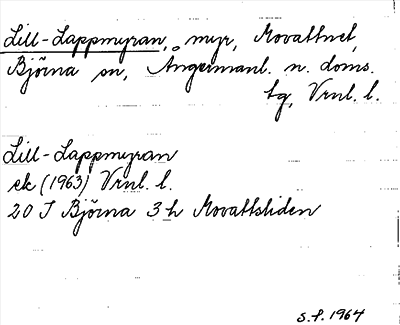 Lill-Lappmyran, myr, Movattnet,
Björna sn, Ångermanl. n. doms.
tg, Vrnl. l.
Lill-Lappmyran
ek (1963) Vrnl. l.
20 J Björna 3 h Movattsliden
S.F. 1964